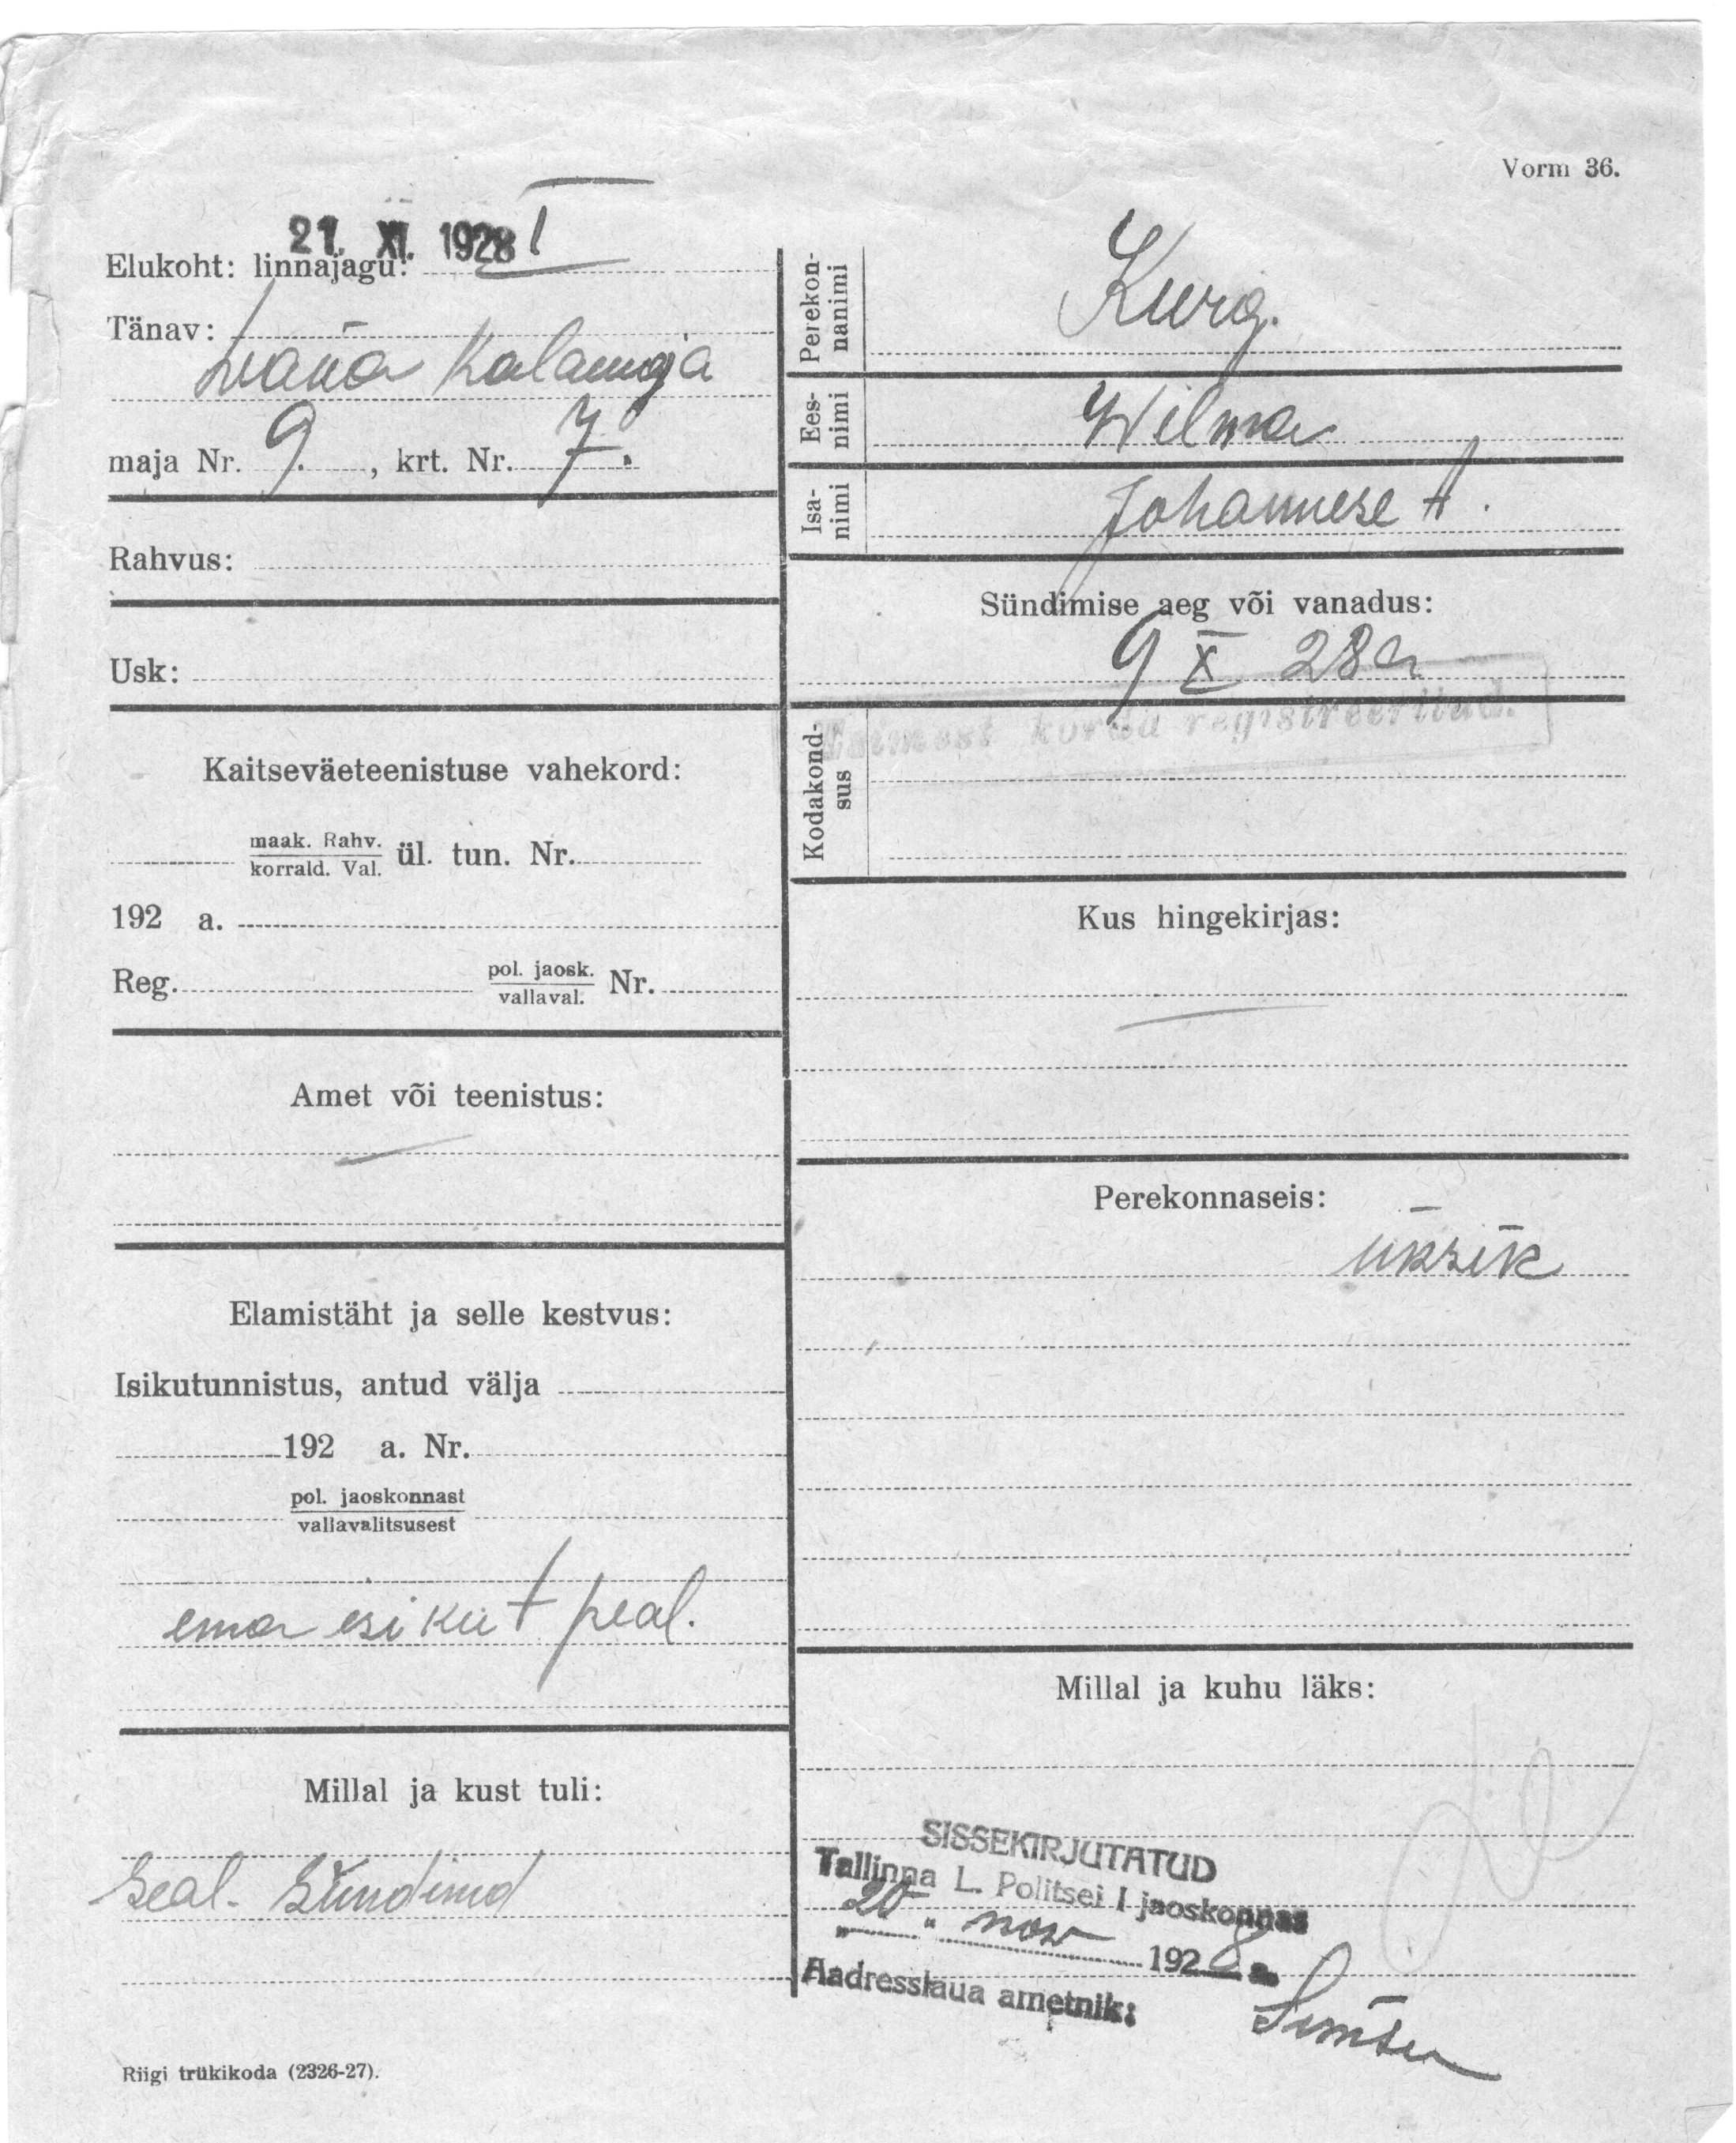 Vorm 36.
21. XI. 1928
Elukoht: linnajagu: I
Tänav:
Wana Kalamaja
maja Nr. 9. , krt. Nr. 7.
Rahvus:
Usk:
Kaitseväeteenistuse vahekord:
maak. Rahv.
korrald. Val. ül. tun. Nr.
192 a.
Reg. pol. jaosk.
vallaval. Nr.
Amet või teenistus:
Elamistäht ja selle kestvus:
Isikutunnistus, antud välja
192 a. Nr.
pol. jaoskonnast
vallavalitsusest
ema isiku t peal.
Millal ja kust tuli:
Seal. Sündinud
Riigi trükikoda (2326-27).
Perekon-
nanimi
Kurg.
Ees-
nimi
Wilma
Isa-
nimi
Johannese t.
Sündimise aeg või vanadus:
9 X 28 a
Esimest korda registreeritud.
Kodakond-
sus
Kus hingekirjas:
Perekonnaseis:
üksik
Millal ja kuhu läks:
SISSEKIRJUTATUD
Tallinna L. Politsei I jaoskonnas
"20" now 1928 a.
Aadresslaua ametnik: